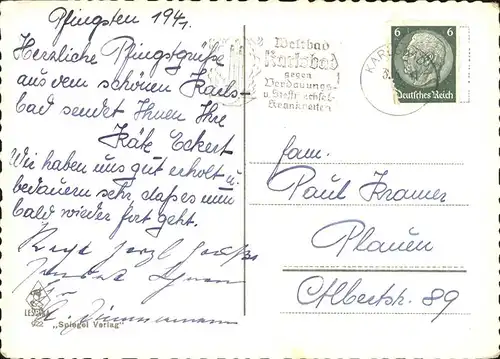 Pfingsten 1941.
Herzliche Pfingstgrüße
aus dem schönen Karls-
bad sendet Ihnen Ihre
Käte Eckert
Wir haben uns gut erholt u.
bedauern sehr, daß es nun
bald wieder fort geht.
Zimmermann
"Spiegel Verlag"
Weltbad
Karlsbad
gegen
Verdauungs-
u. Stoffwechsel-
Krankheiten
KARLSBAD
6 6
Deutsches Reich
Fam.
Paul Kramer
Plauen
Albertstr. 89